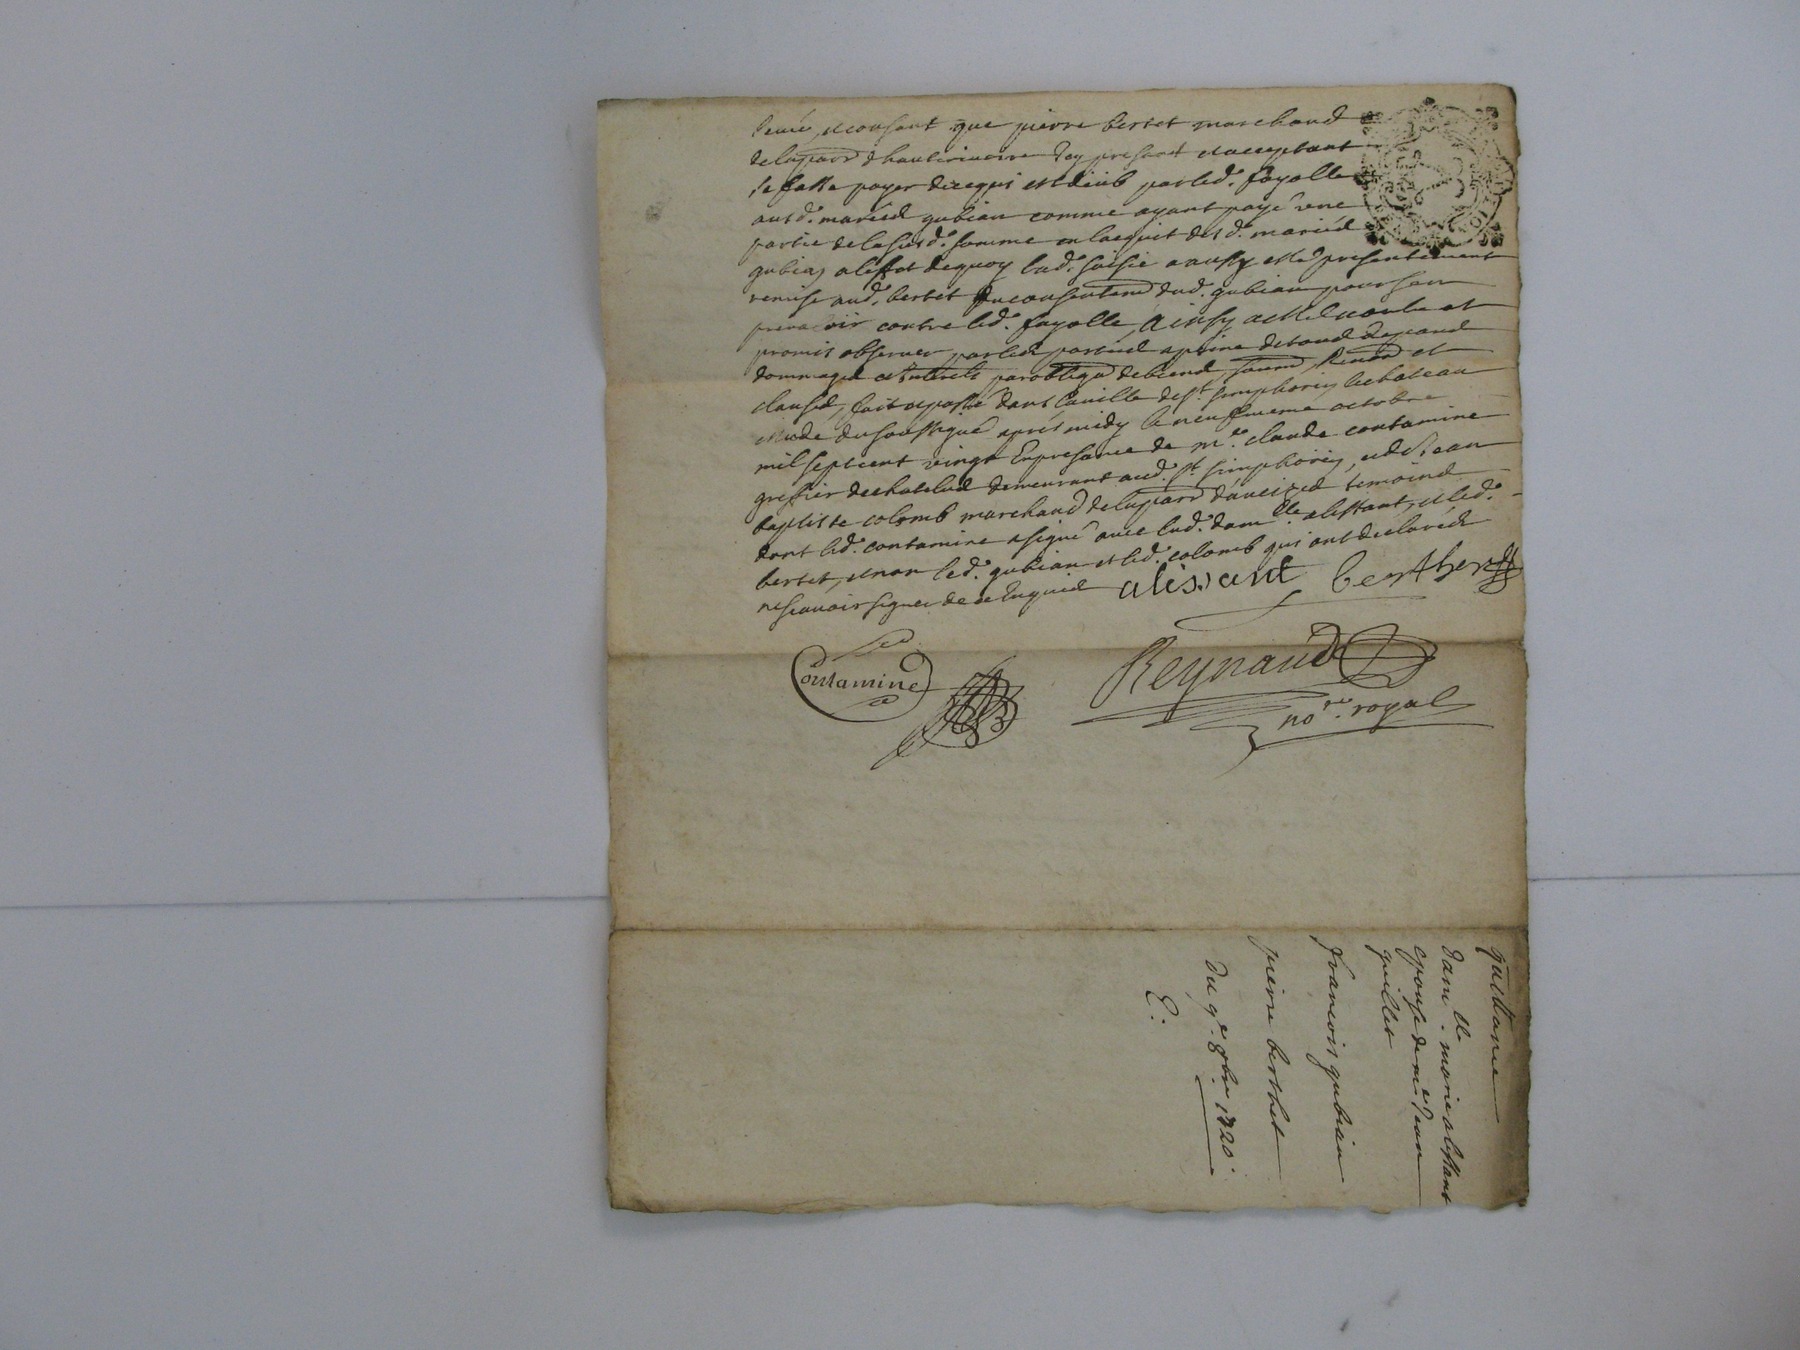 et consant que pierre bertet marchand
de la parr d'hauterivoire icy presant et acceptant
se fasse payer de ce qui est deub par led. fayolle
ausd. mariéd gubian comme ayant payé une
partie de la susd. somme en lacquit desd. mariéd
gubian a leffet de quoy lad. saisie a aussy esté presentement
remise aud. bertet du consentem dud. gubian pour sen
prevaloir contre led. fayolle, Ainsy
promis observer par lesd. partied a peine de toud depand
dommaged et interets par obliga de biend soumi Renon et
claused, fait et passé dans la ville de st. simphorin le chateau
etude du soussigné apres midy le neufvieme octobre
mil sept cent vingt En presance de me. claude contamine
greffier de chatelud demeurant aud. st simphorin, et de sr Jean
baptiste colomb marchand de la parr d'aveized temoind
dont led. contamine a signé avec lad. damlle. alissant, et led.
bertet, et non led. gubian et led. colomb qui ont declaréd
ne scavoir signer de ce Enquid alissant berthet
Contamine
Reynaud
nore. royal
quittance
damlle. marie alissant
epouse de me Jean
guillet
francois gubian
pierre berthet
du 9e. 8bre 1720.
E.